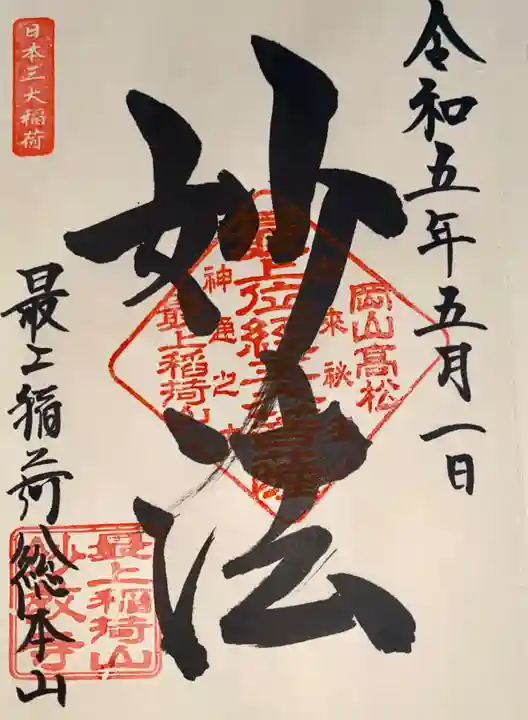 令和五年五月一日
岡山高松
来秘
最上位経王大菩薩
神通之
最上稲荷山
妙法
日本三大稲荷
最上稲荷総本山
最上稲荷山
妙教寺